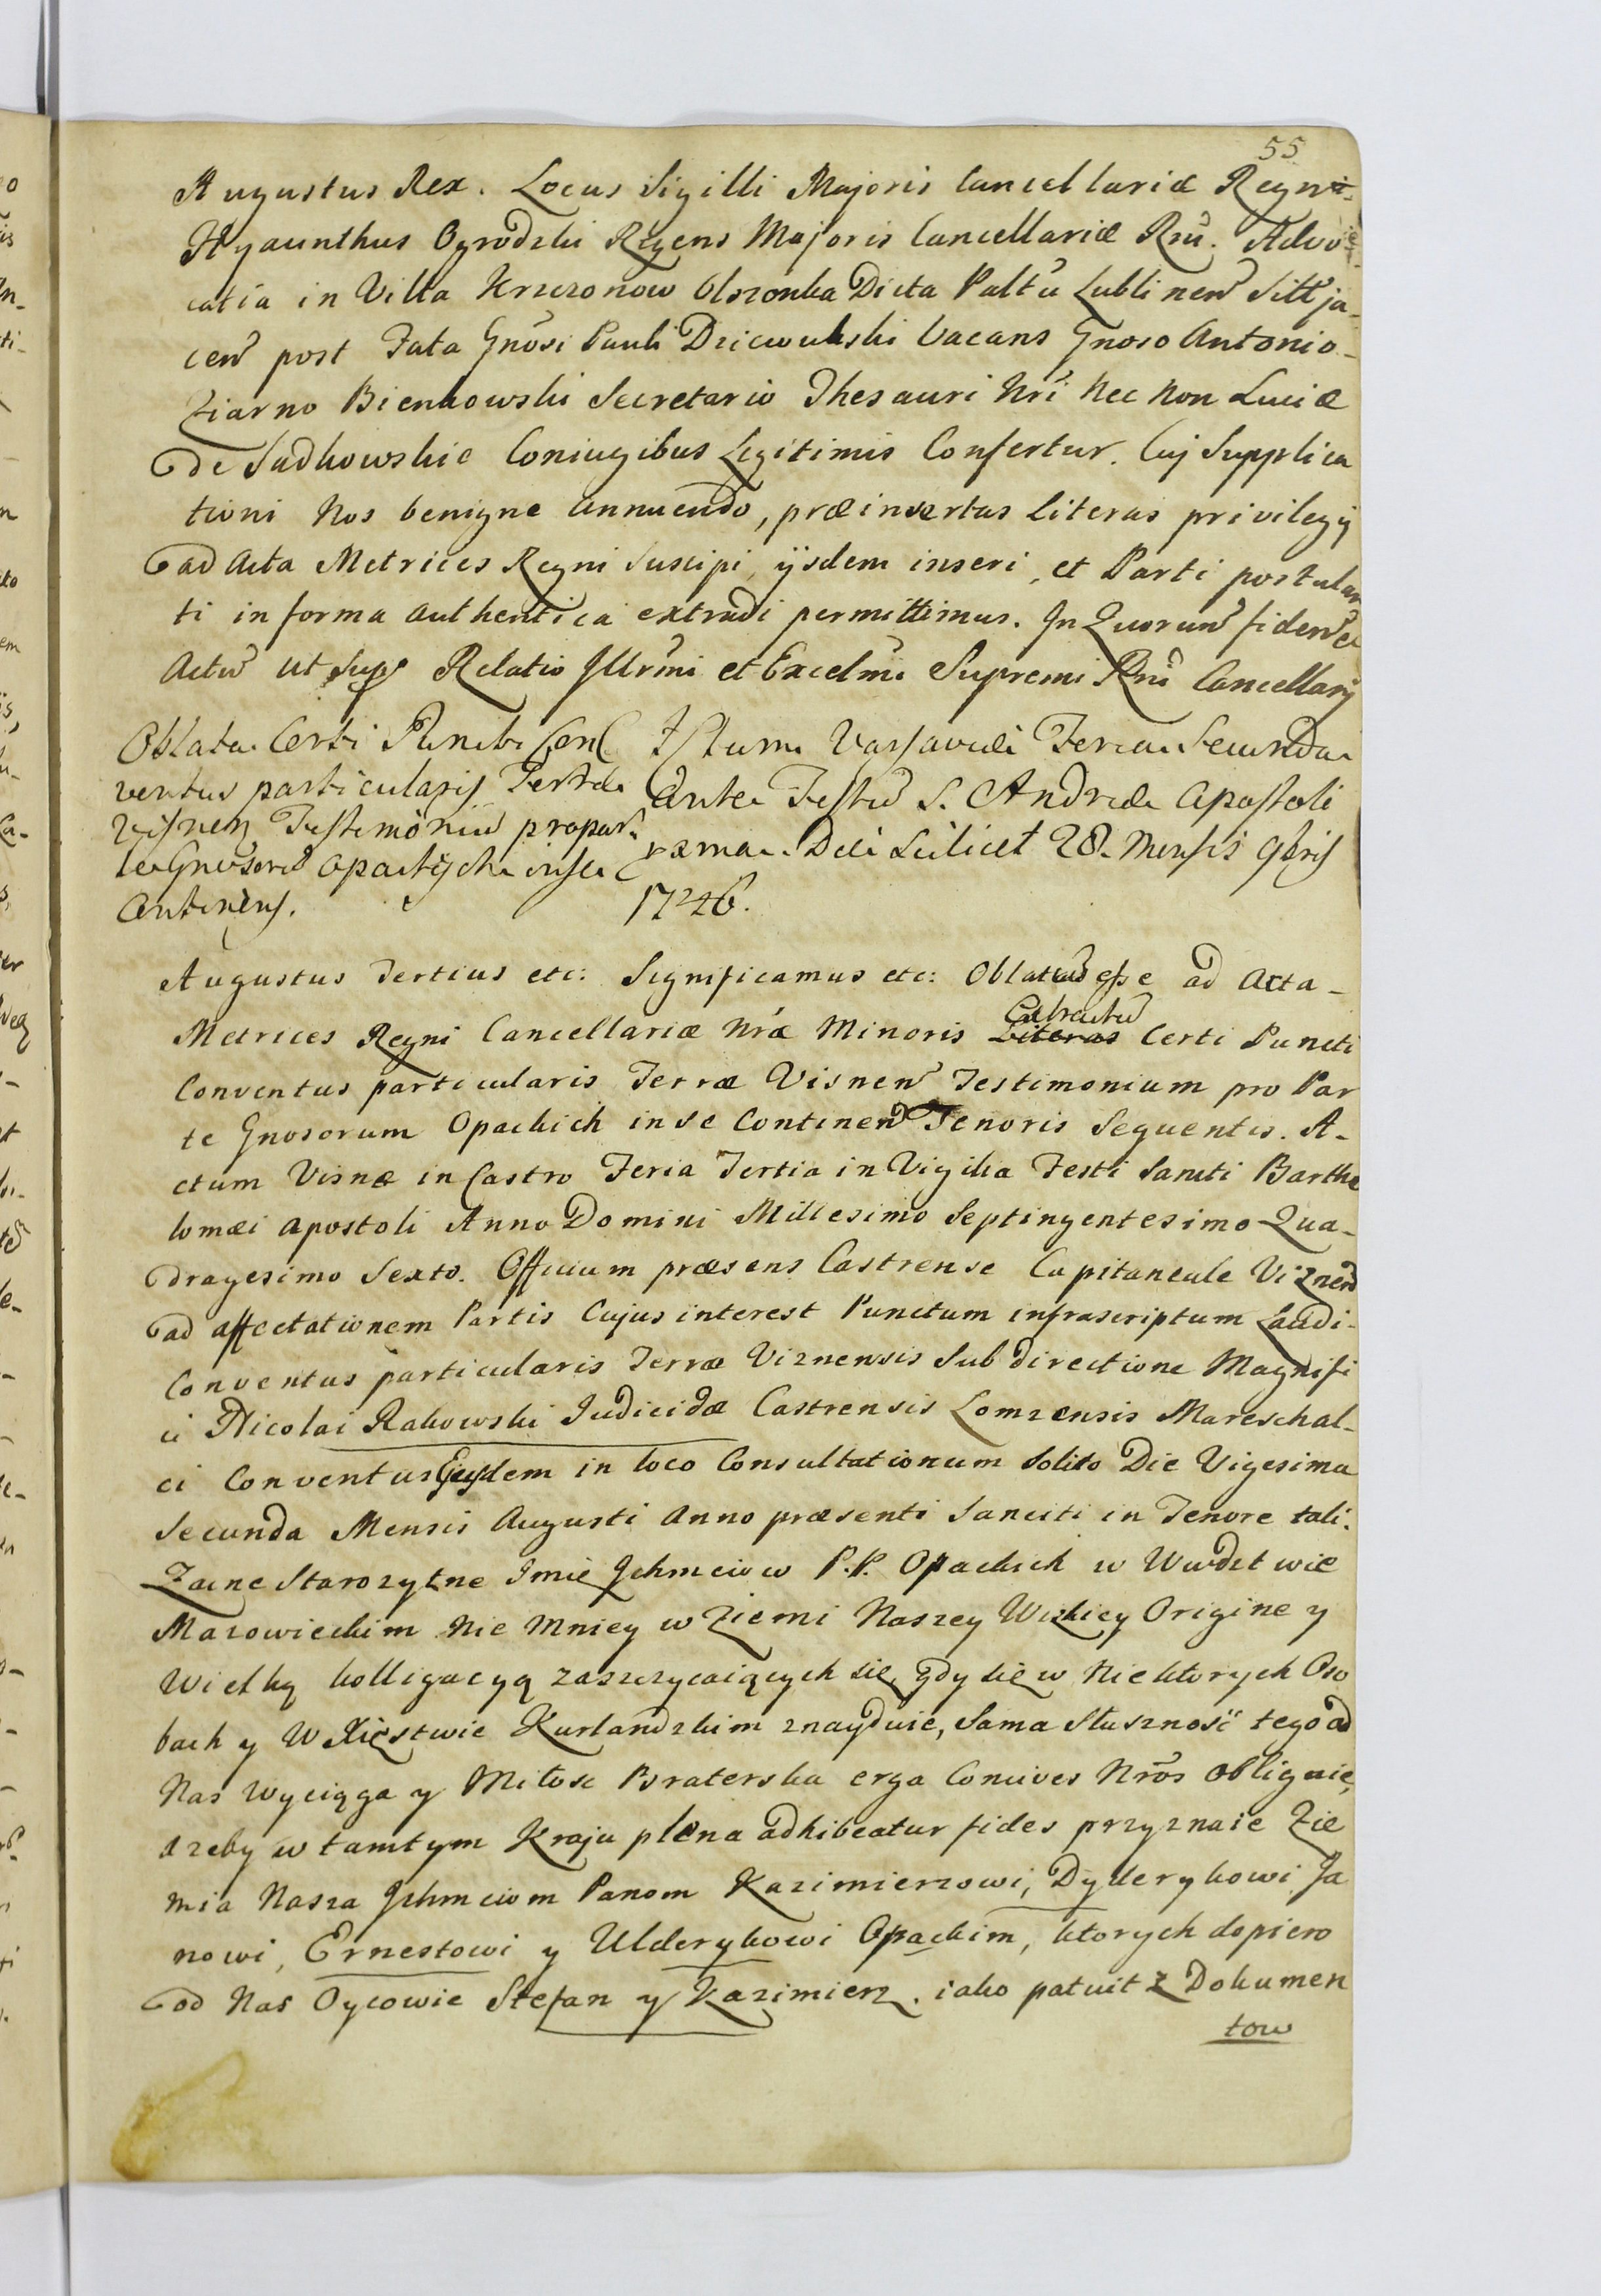 55
Augustus Rex. Locus Sigilli Majoris Cancellariæ Regni.
Hyacinthus Ogrodzki Regens Majoris Cancellariæ Rni. Advo-
catia in Villa Krzczonow Olszonka Dicta Paltũ Lublinen Sitt ja-
cen post Fata Gnosi Pauli Dziewulski Vacans Gnoso Antonio
Ziarno Bienkowski Secretario Thesauri Nri Nec Non Luciæ
de Sadkowskie Coniugibus Legitimis Confertur. Cuj Supplica
tioni Nos benigne annuendo, præinsertas Literas privilegij
ad Acta Metrices Regni Suscipi, ijsdem inseri, et Parti postulan
ti in forma authentica extradi permittimus. In Quorum fidem etc
Actum ut Supra Relatio Illrmi et Excelmi Supremi Rni Cancellarij
Oblata Certi Puncti Con
ventus particularis Terræ
Visnen Testimonium propar
te Gnosorum Opackych in se
Continens.
Actum Varsaviæ Feria Secunda
Ante Festum S. Andreæ Apostoli
proxima Die Scilicet 28. Mensis 9bris
1746.
Augustus Tertius etc: Significamus etc: Oblatum esse ad Acta
Metrices Regni Cancellariæ Nræ Minoris Literas Extractum Certi Puncti
Conventus particularis Terræ Visnen Testimonium pro Par
te Gnosorum Opackich in se Continen Tenoris Sequentis. A-
ctum Visnæ in Castro Feria Tertia in Vigilia Festi Sancti Bartho
lomæi Apostoli Anno Domini Millesimo Septingentesimo Qua-
dragesimo Sexto. Officium præsens Castrense Capitaneale Viznen
ad affectationem Partis Cujus interest Punctum infrascriptum Laudi
Conventus particularis Terræ Viznensis Sub directione Magnifi
ci Nicolai Rakowski Judicidæ Castrensis Lomzensis Mareschal-
ci Conventus Ejusdem in loco Consultationum Solito Die Vigesima
Secunda Mensis Augusti Anno præsenti Sanciti in Tenore tali.
Zacne Starozytne Imie Ichmciow P.P. Opackich w Wwdztwie
Mazowieckim Nie Mniey w Ziemi Naszey Wizkiey Origine y
Wielką kolligacyą zaszczycaiących się, gdy się w Niektorych Oso
bach y W Xięstwie Kurlandzkim znayduie, Sama Słusznosć tego od
Nas Wyciąga y Miłosc Braterska erga Concives Nros obliguie,
azeby w tamtym Kraju plena adhibeatur fides przyznaie Zie
mia Nasza Ichmciom Panom Kazimierzowi, Dyderykowi Ja
nowi, Ernestowi y Ulderykowi Opackim, ktorych dopiero
od Nas Oycowie Stefan y Kazimierz, iako patuit z Dokumen
tow